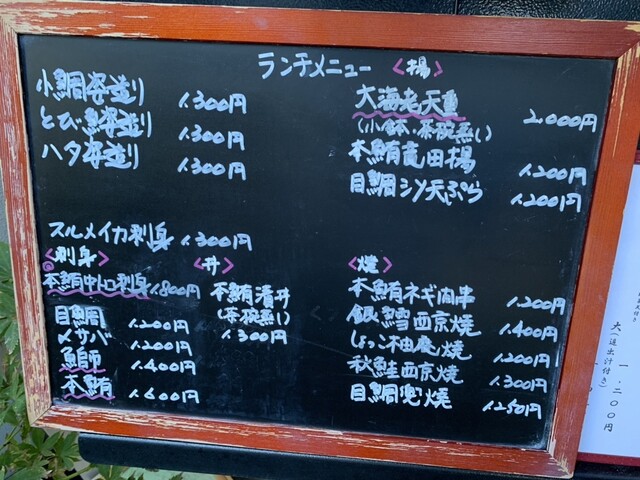 ランチメニュー
小鯛姿造り 1.300円
とび魚姿造り 1.300円
ハタ姿造り 1.300円
スルメイカ刺身 1.300円
<刺身>
本鮪中トロ刺身 1.800円
目鯛 1.200円
〆サバ 1.200円
鰤師 1.400円
本鮪 1.600円
<丼>
本鮪漬丼
(茶碗蒸い)
1.300円
<揚>
大海老天重 2.000円
(小鉢・茶碗蒸い)
本鮪竜田揚 1.200円
目鯛シソ天ぷら 1.200円
<焼>
本鮪ネギ間串 1.200円
銀鱈西京焼 1.400円
しょっこ柚庵焼 1.200円
秋鮭西京焼 1.300円
目鯛兜焼 1.250円
大(追出汁付き) 一、二〇〇円